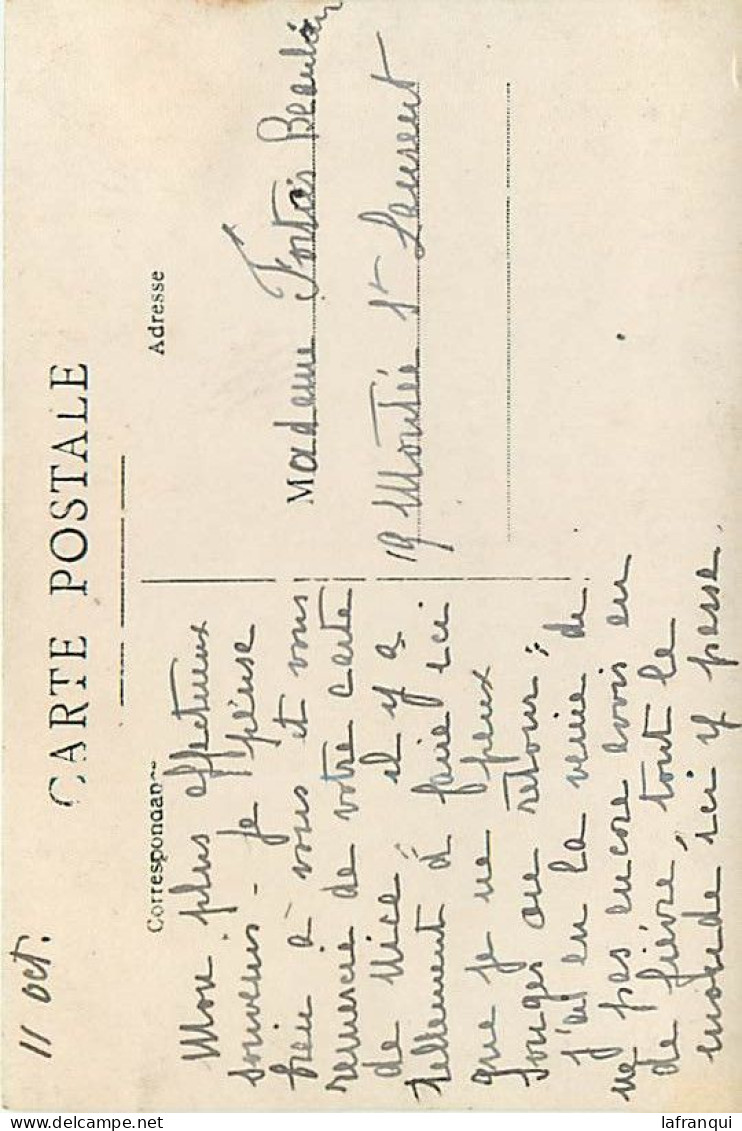 11 oct.
CARTE POSTALE
Correspondance
Adresse
Mon plus affectueux
souvenir - je pense
bien à vous et vous
remercie de votre carte
de Nice, il y a
tellement à faire ici
que je ne peux
songer au retour;
j'ai eu la veine de
ne pas encore avoir eu
de fièvre, tout le
monde ici y passe.
Madame
19 Montée St Laurent
lafranqui